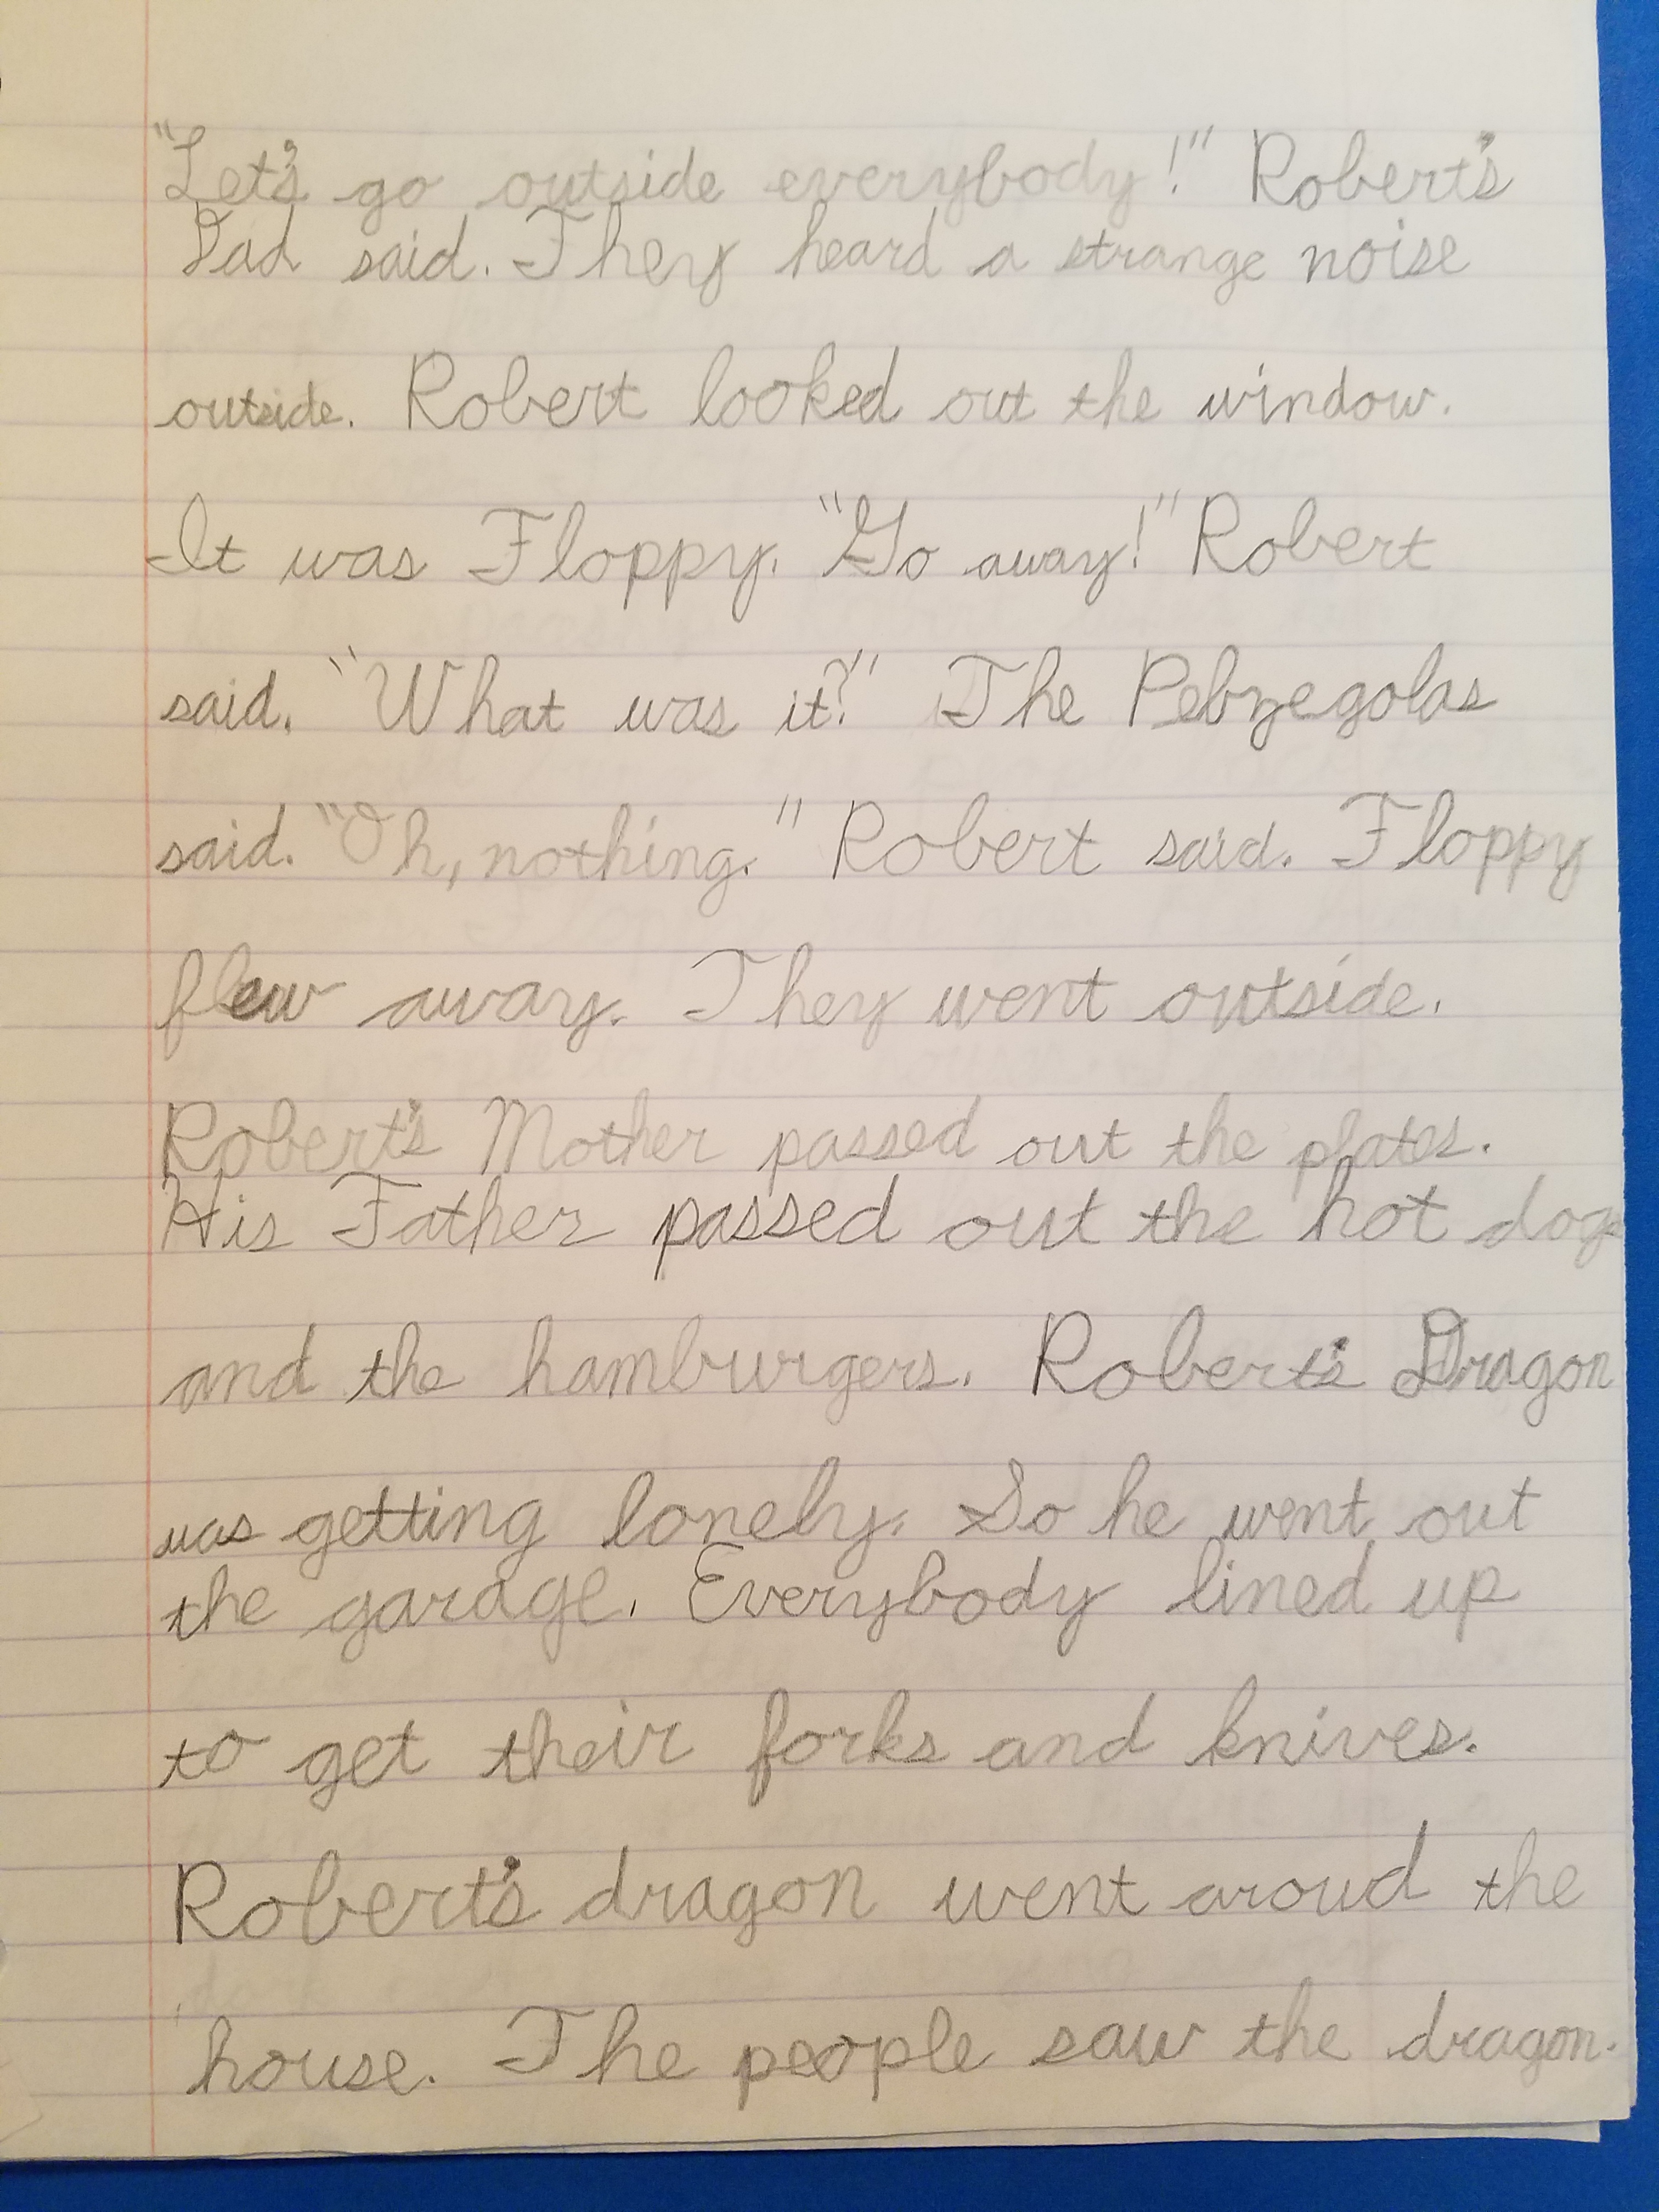 "Let's go outside everybody!" Robert's
Dad said. They heard a strange noise
outside. Robert looked out the window.
It was Floppy. "Go away!" Robert
said. "What was it?" The Pebzegolas
said. "Oh, nothing." Robert said. Floppy
flew away. They went outside.
Robert's Mother passed out the plates.
His Father passed out the hot dogs
and the hamburgers. Robert's Dragon
was getting lonely. So he went out
the garage. Everybody lined up
to get their forks and knives.
Robert's dragon went aroud the
house. The people saw the dragon.